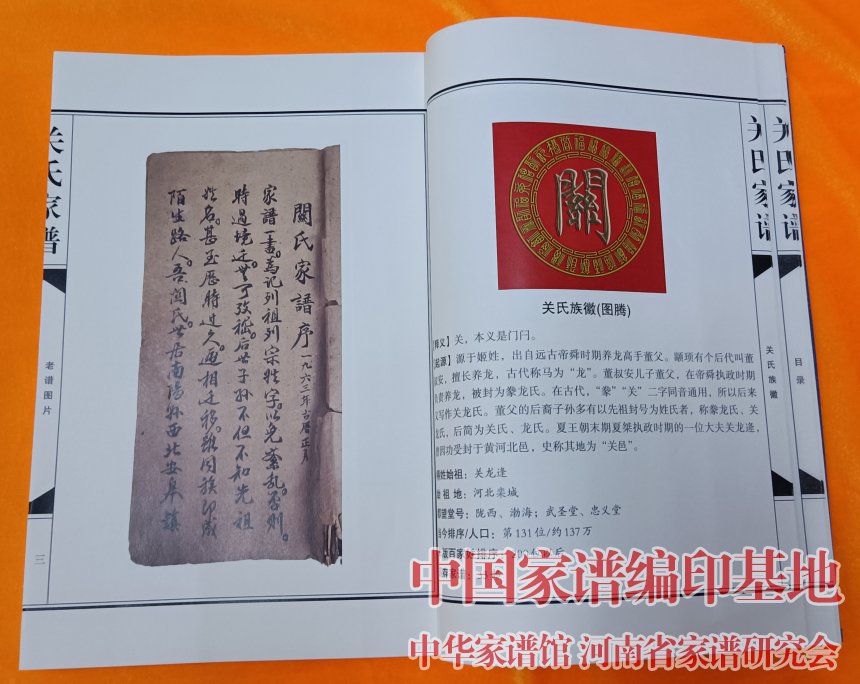 关氏家谱
老谱图片
三
關氏家譜序 一九六三年古曆正月
家譜一書。為记列祖列宗姓字。以免紊乱。否则。
時过境迁。世可攷稽。后世子孙不但不知先祖
姓名。甚至歷時过久。迥相迁移。雖同族即成
陌生路人。吾關氏世居南陽县西北安皋鎮
關
关氏族徽(图腾)
【释义】关，本义是门闩。
【起源】源于姬姓，出自远古帝舜时期养龙高手董父。颛顼有个后代叫董
叔安，擅长养龙，古代称马为“龙”。董叔安儿子董父，在帝舜执政时期
负责养龙，被封为豢龙氏。在古代，“豢”“关”二字同音通用，所以后来
又写作关龙氏。董父的后裔子孙多有以先祖封号为姓氏者，称豢龙氏、关
龙氏，后简为关氏、龙氏。夏王朝末期夏桀执政时期的一位大夫关龙逄，
曾因功受封于黄河北邑，史称其地为“关邑”。
得姓始祖：关龙逄
始 祖 地：河北栾城
郡望堂号：陇西、渤海；武圣堂、忠义堂
当今排序/人口：第131位/约137万
关氏家谱
关氏族徽
关氏家谱
目录
中国家谱编印基地
中华家谱馆 河南省家谱研究会